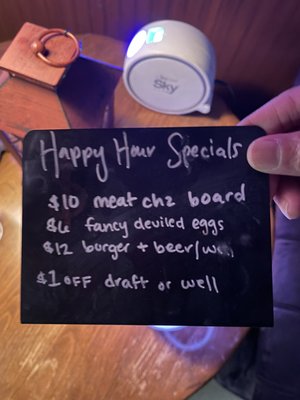 Sky
Happy Hour Specials
$10 meat chz board
$6 fancy deviled eggs
$12 burger + beer/well
$1 OFF draft or well